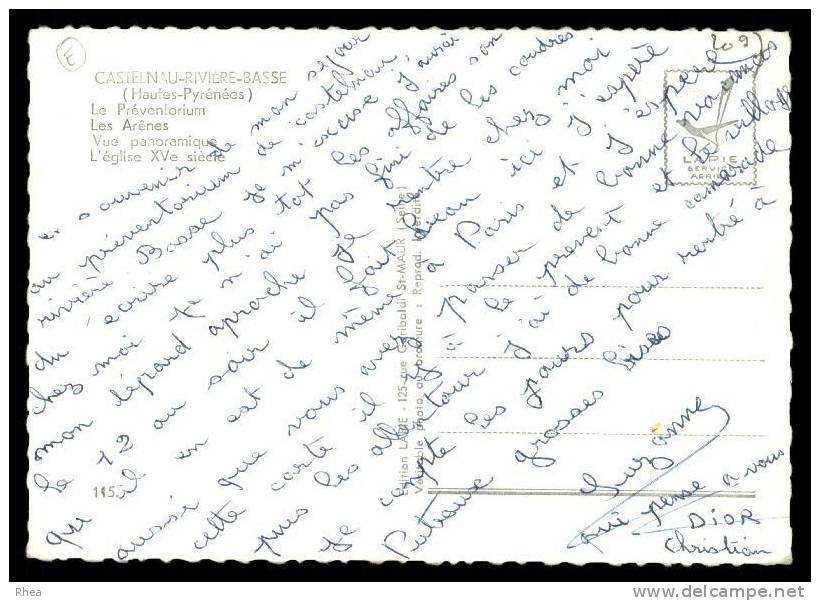 E
209
CASTELNAU-RIVIÈRE-BASSE
(Hautes-Pyrénées)
Le Préventorium
Les Arênes
Vue panoramique
L'église XVe siècle
LAPIE
SERVICE
AERIEN
Edition LAPIE - 125, rue Garibaldi St-MAUR (Seine)
Véritable photo au bromure : Reprod. Interdite
en souvenir de mon séjour
au préventorium de castelnau,
rivière Basse Je m'excuse J'aurai
du écrire plus tot les affaires son
chez moi Je n'ai pas fini de les coudres
mon dépard aproche Je rentre chez moi
le 12 au soir il fait beau ici J'espère
qu'il en est de même à Paris et J'espère
aussi que vous avez passer de bonne vacances
cette carte il y à le prevent et le village
puis les allentour J'ai de bonne camarade
Je compte les jours pour rentré à
Puteaux grosses bises
Suzanne
qui pense a vous
DiOR
Christian
1155
Rhea